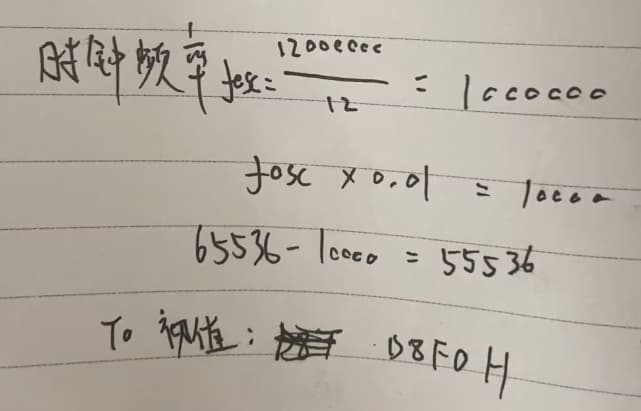 时钟频率 fosc = 12000000 / 12 = 1000000
fosc × 0.01 = 10000
65536 - 10000 = 55536
T0 初值: D8F0H